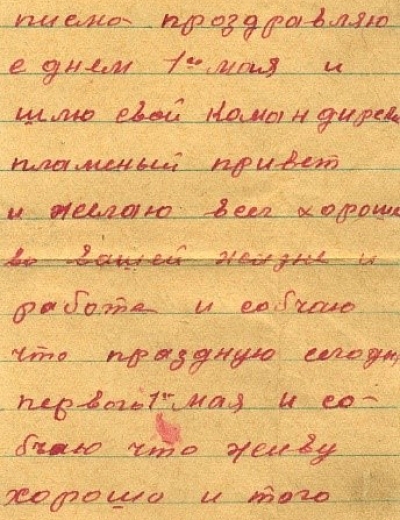 писмо проздравляю
с днем 1го мая и
шлю свой командирски
пламеный привет
и желаю всег хороше
во вашей жизне и
работе и собчаю
что праздную сегодн
первого 1го мая и со-
бчаю что живу
хорошо и того